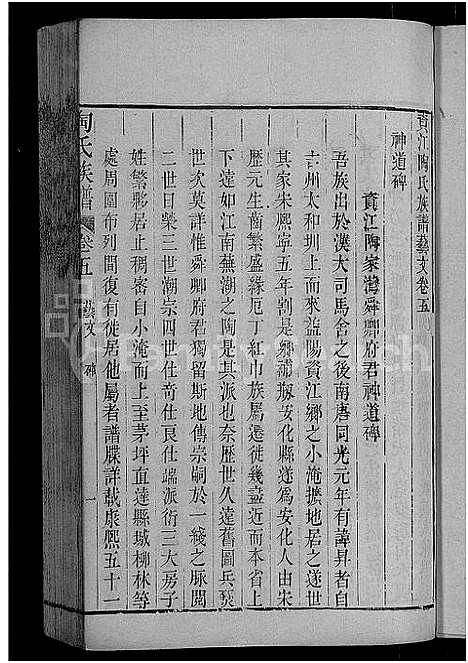 資江陶氏族譜藝文卷五
神道碑
資江陶家灣舜卿府君神道碑
吾族出於漢大司馬舍之後南唐同光元年有諱昇者自
吉州太和圳上而來益陽資江鄉之小淹擴地居之遂世
其家朱熙寧五年割是鄉補瓶安化縣遂為安化人由宋
歷元生齒繁盛緣厄丁紅巾族屬遷徙幾盡近而本省上
下遠如江南蕪湖之陶是其派也奈歷世久遠舊圖兵燹
世次莫詳惟舜卿府君獨留斯地傳宗嗣於一綫之脉閱
二世日榮三世潮宗四世仕竒仕良仕端派衍三大房子
姓繁夥居止稠密自小淹而上至茅坪直達縣城柳林等
處周圍布列間復有徙居他屬者譜牒詳載康熙五十一
陶氏族譜
卷五
藝文 碑
一